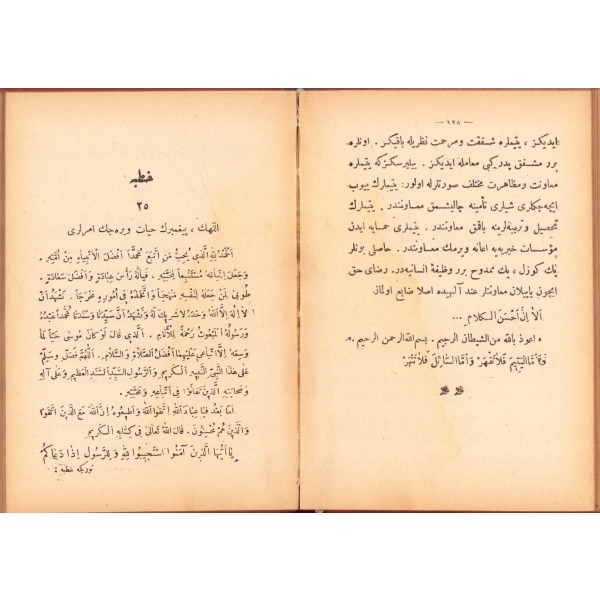 — ١٢٨ —
ايديكز ، يتيملره شفقت و مرحمت نظريله باقيكز . اونلره
برر مشفق پدر كبى معامله ايديكز . بيليرسكز كه يتيملره
معاونت و مظاهرت مختلف صورتلرله اولور: يتيمارك ييوب
ايچه جكلرى شيلرى تأمينه چاليشمق معاونتدر . يتيملرك
تحصيل و تربيه لرينه باقمق معاونتدر . يتيملرى حمايه ايدن
مؤسسات خيريه يه اعانه ويرمك معاونتدر . حاصلى بونلر
پك كوزل ، پك ممدوح برر وظيفۀ انسانيه در . رضاى حق
ايچون ياپيلان معاونتلر عند الهيده اصلا ضايع اولماز
اَلاَ اِنَّ اَحْسَنَ الْكَلاَمِ ...
اعوذ بالله من الشيطان الرجيم . بسم الله الرحمن الرحيم .
فَاَمَّا الْيَتِيمَ فَلاَ تَقْهَرْ وَاَمَّا السَّائِلَ فَلاَ تَنْهَرْ
خطبه
٢٥
اللهك ، پيغمبرك حيات ويره جك امرلرى
اَلْحَمْدُ لِلّٰهِ الَّذِى يُحِبُّ مَنِ اتَّبَعَ مُحَمَّدًا اَفْضَلَ الْاَنْبِيَاءِ مِنْ اُمَّتِهِ .
وَجَعَلَ اِتِّبَاعَهُ مُسْتَتْبِعاً لِمَحَبَّتِهِ . فَيَالَهُ رَأْسَ عِبَادَةٍ وَاَفْضَلَ سَعَادَةٍ .
طُوبٰى لِمَنْ جَعَلَهُ لِنَفْسِهِ مِنْهَاجاً وَاتَّخَذَهُ فِى اُمُورِهِ مَخْرَجاً . نَشْهَدُ اَنْ
لاَ اِلٰهَ اِلاَّ اللّٰهُ وَحْدَهُ لاَ شَرِيكَ لَهُ وَنَشْهَدُ اَنَّ سَيِّدَنَا وَسَنَدَنَا مُحَمَّدًا عَبْدُهُ
وَرَسُولُهُ الْمَبْعُوثُ رَحْمَةً لِلْاَنَامِ . اَلَّذِى قَالَ لَوْ كَانَ مُوسٰى حَيًّا لَمَا
وَسِعَهُ اِلاَّ اتِّبَاعِى عَلَيْهِمَا اَفْضَلُ الصَّلاَةِ وَالسَّلاَمِ . اَللّٰهُمَّ فَصَلِّ وَسَلِّمْ
عَلٰى هٰذَا النَّبِىِّ النَّبِيهِ الْكَرِيمِ وَالرَّسُولِ السَّيِّدِ السَّنَدِ الْعَظِيمِ وَعَلٰى آلِهِ
وَصَحَابَتِهِ الَّذِينَ تَفَانَوْا فِى اتِّبَاعِهِ وَمَحَبَّتِهِ .
اَمَّا بَعْدُ فَيَا عِبَادَ اللّٰهِ اِتَّقُوا اللّٰهَ وَاَطِيعُوهُ اِنَّ اللّٰهَ مَعَ الَّذِينَ اتَّقَوْا
وَالَّذِينَ هُمْ مُحْسِنُونَ . قَالَ اللّٰهُ تَعَالٰى فِى كِتَابِهِ الْكَرِيمِ
يَا اَيُّهَا الَّذِينَ آمَنُوا اسْتَجِيبُوا لِلّٰهِ وَلِلرَّسُولِ اِذَا دَعَاكُمْ
توركجه خطبه :